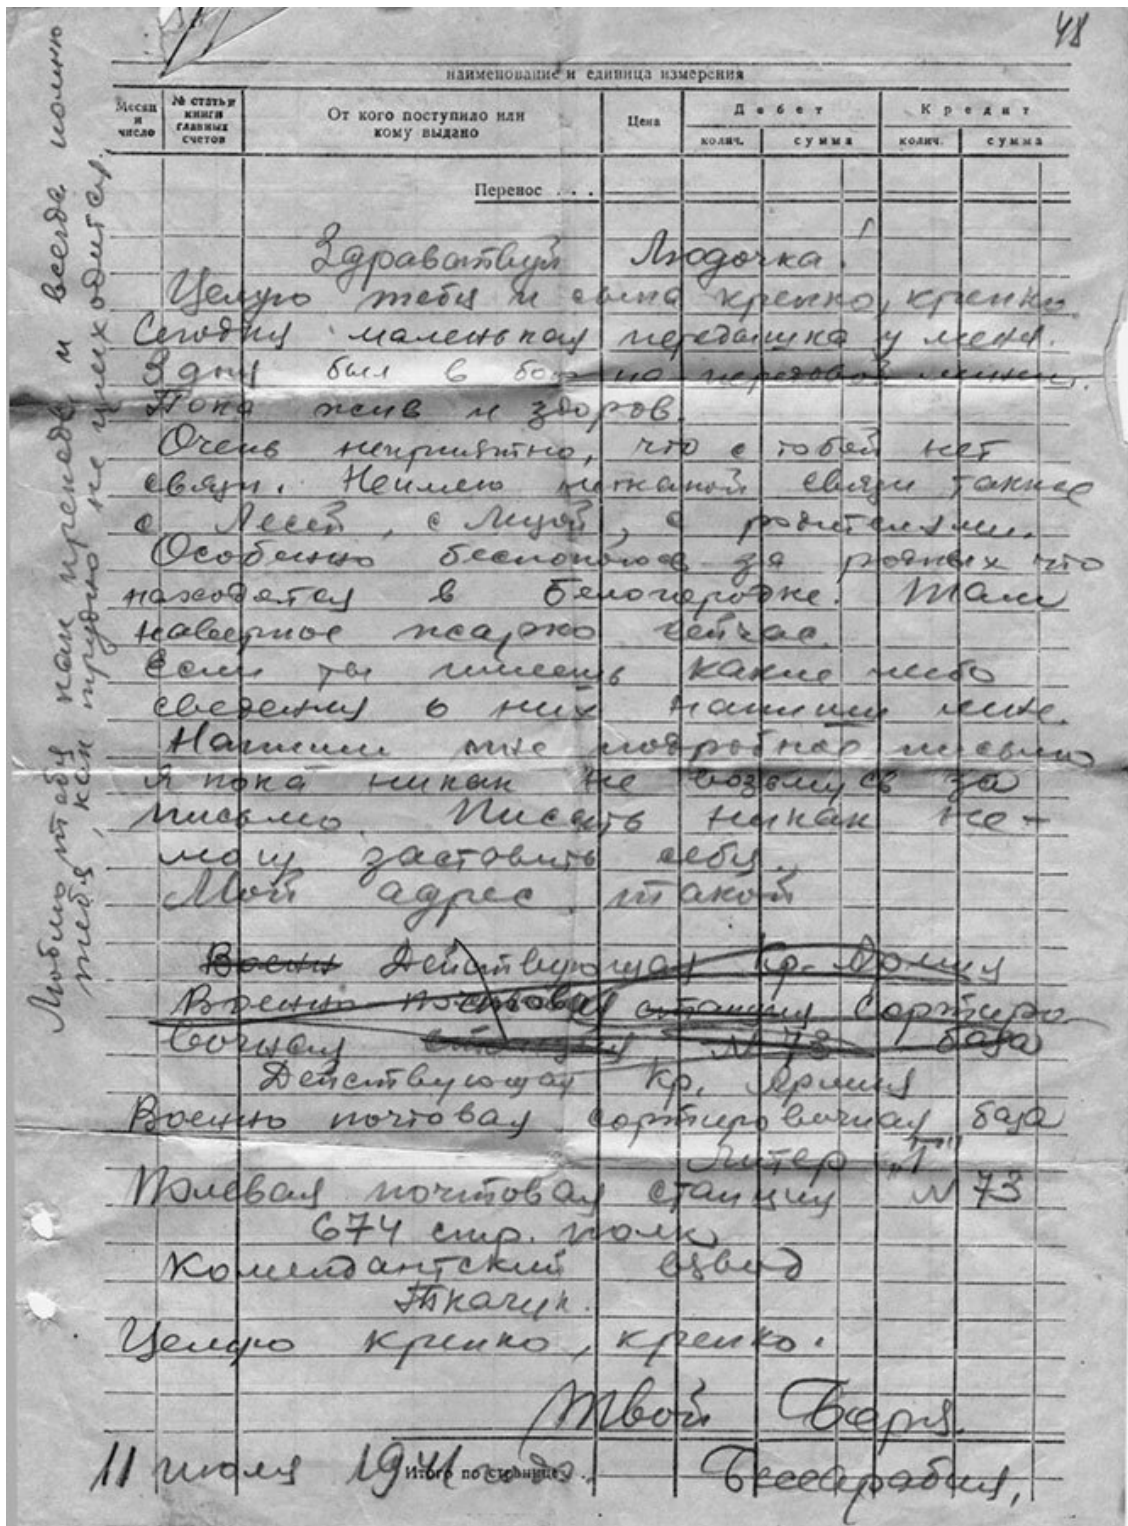 48
наименование и единица измерения
Месяц и число
№ статьи книги главных счетов
От кого поступило или кому выдано
Цена
Дебет
Кредит
колич.
сумма
колич.
сумма
Перенос . . .
Здравствуй Людочка!
Целую тебя и сына крепко, крепко.
Сегодня маленькая передышка у меня.
3 дня был в бою на передовой линии.
Пока жив и здоров.
Очень неприятно, что с тобой нет
связи. Неимею никакой связи также
с Лесей, с Лизой, с родителями.
Особенно беспокоюсь за родных что
находятся в Белогородке. Там
наверное жарко сейчас.
Если ты имеешь какие либо
сведения о них напиши мне.
Напиши мне подробное письмо
Я пока никак не возьмусь за
письмо. Писать никак не-
могу заставить себя.
Мой адрес такой
Военн Действующая Кр. Армия
Военно почтовая станция Сортиро
вочная станция N 73 база
Действующая Кр. Армия
Военно почтовая сортировочная база
Литер "Т"
Полевая почтовая станция N 73
674 стр. полк
Комендантский взвод
Ткачук.
Целую крепко, крепко.
Твой Боря.
11 июля 1941 года.
Итого по странице . .
Бессарабия,
Люблю тебя как прежде и всегда помню
тебя, как трудно не приходится.